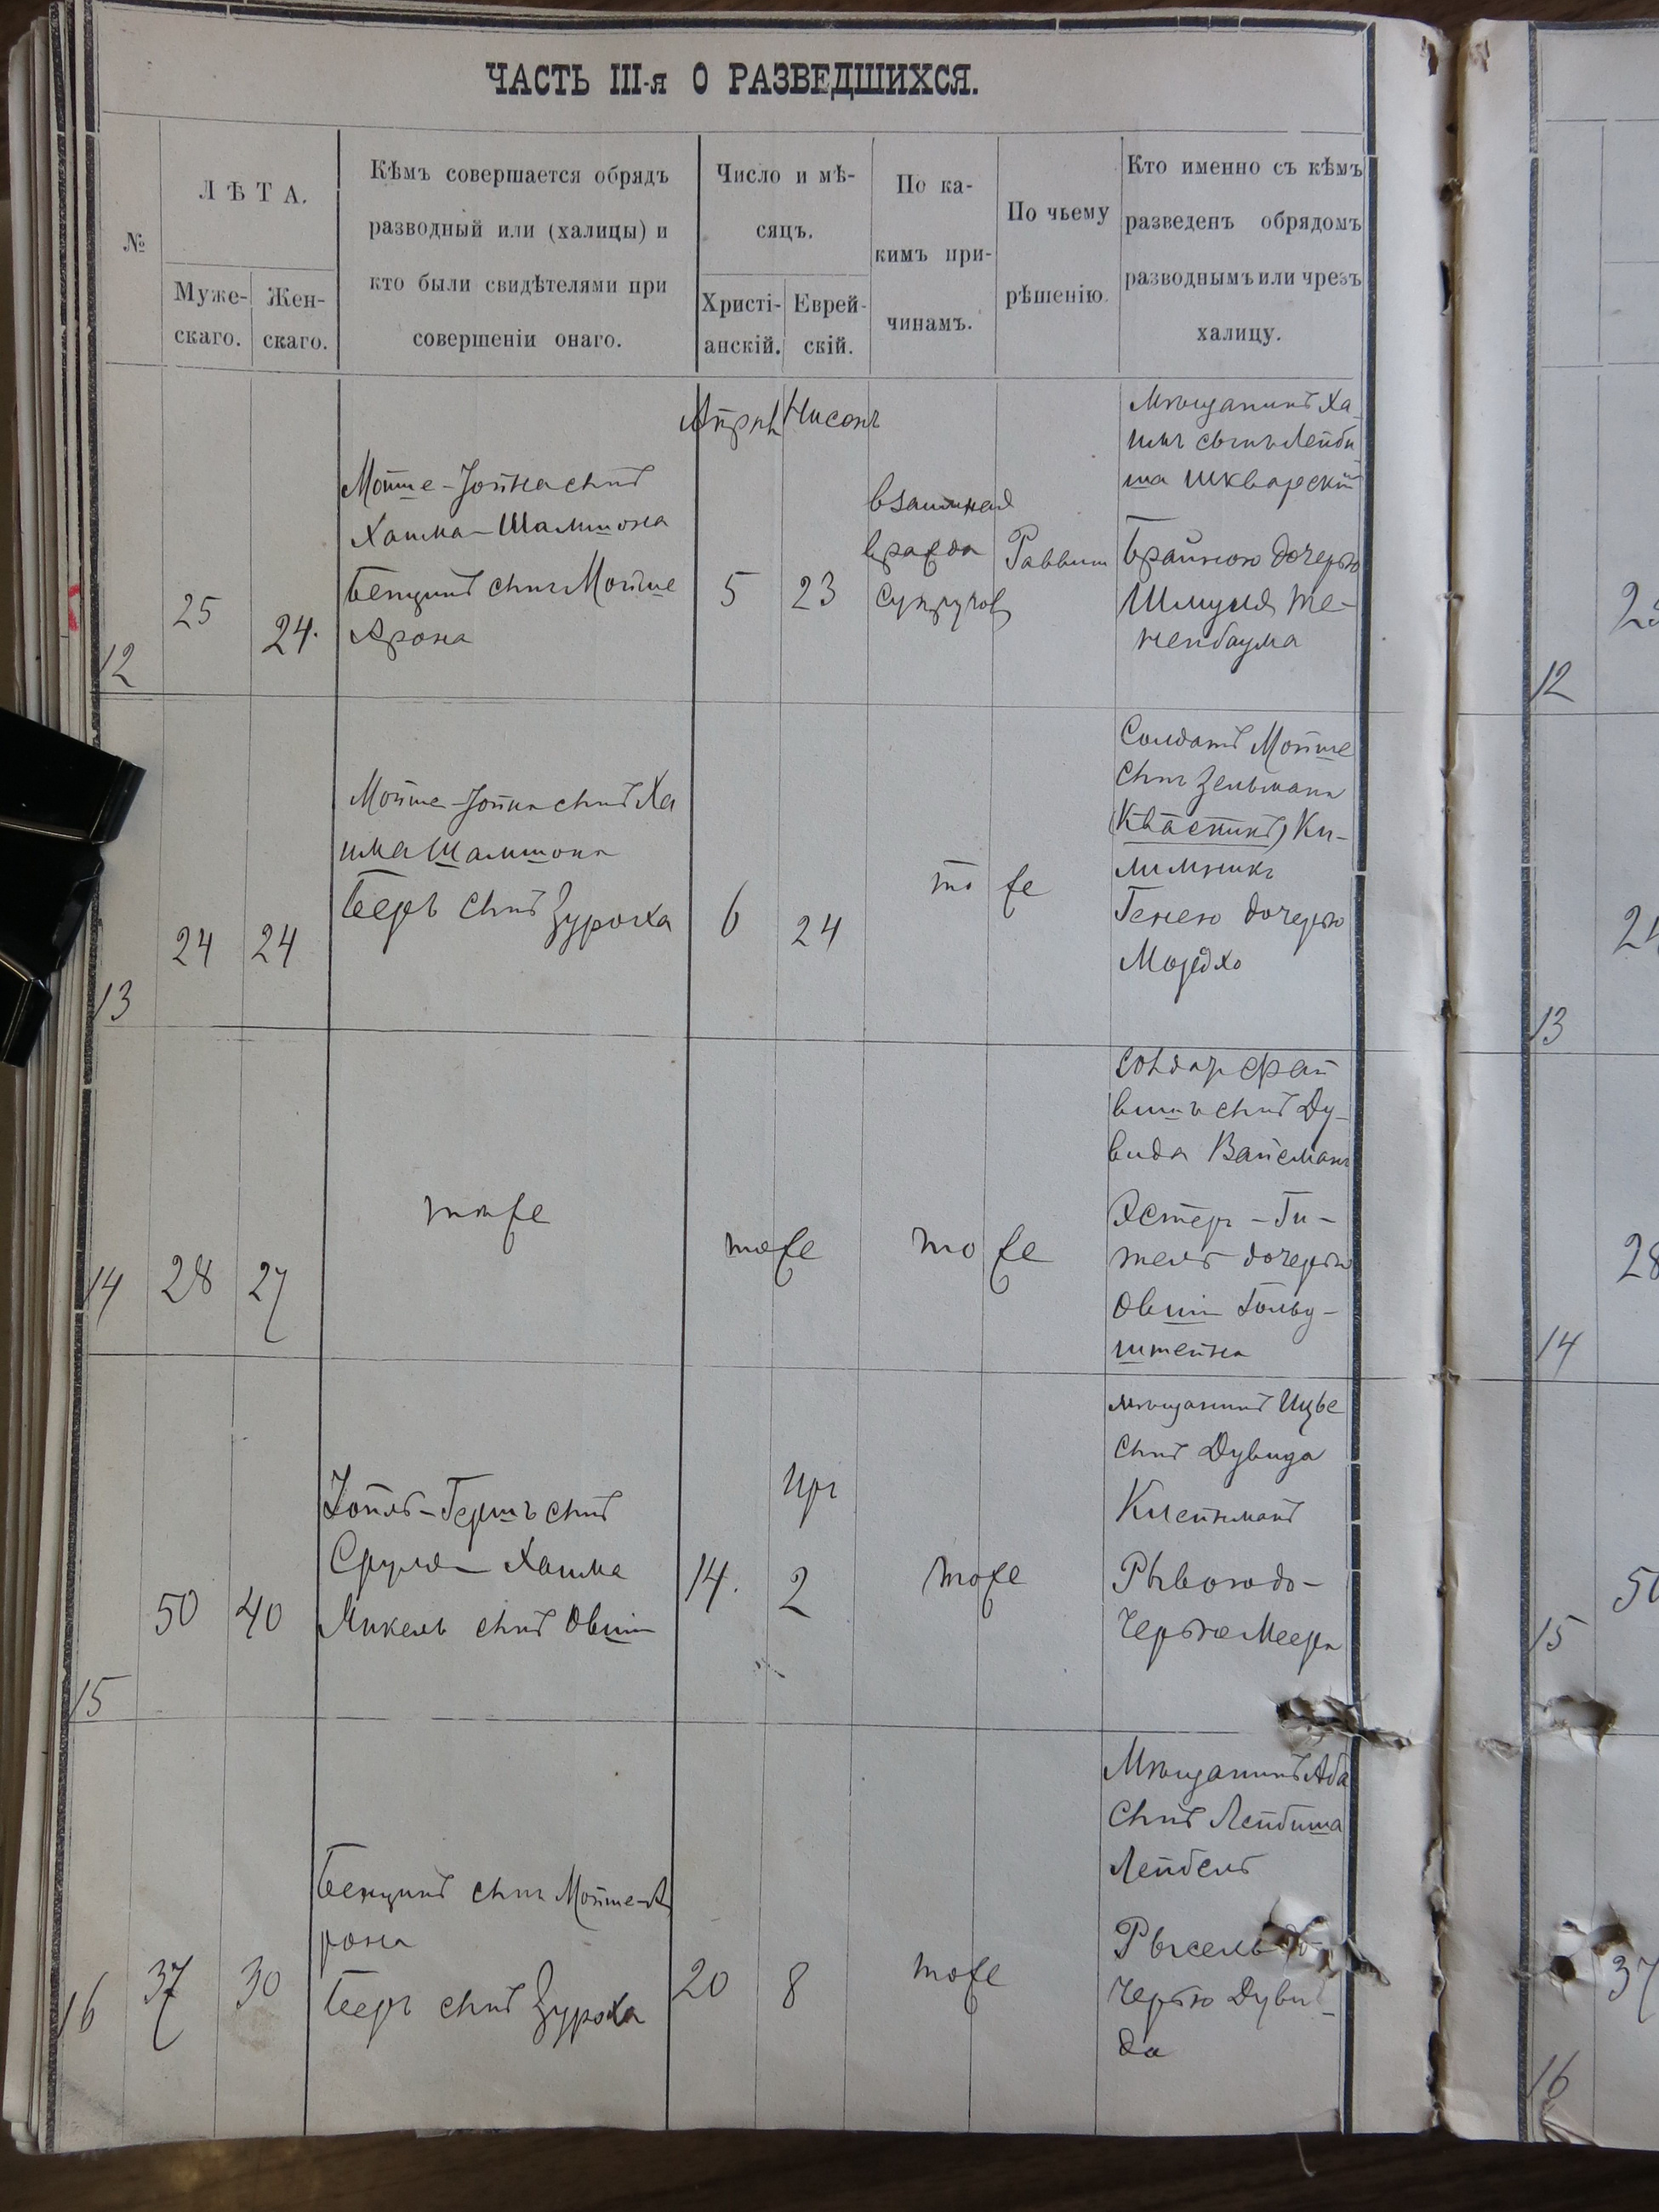 ЧАСТЬ III-я О РАЗВЕДШИХСЯ.
№
ЛѢТА.
Муже-
скаго.
Жен-
скаго.
Кѣмъ совершается обрядъ
разводный или (халицы) и
кто были свидѣтелями при
совершеніи онаго.
Число и мѣ-
сяцъ.
Христі-
анскій.
Еврей-
скій.
По ка-
кимъ при-
чинамъ.
По чьему
рѣшенію.
Кто именно съ кѣмъ
разведенъ обрядомъ
разводнымъ или чрезъ
халицу.
12
25
24.
Мойше-Іойна сынъ
Хаима-Шамшона
Бенционъ сынъ Мойше
Арона
Нисонъ
5
23
взаимная
вражда
супруговъ
Раввин
Мѣщанинъ Ха
имъ сынъ Лейби
ша Шкварскій
Брайною дочерью
Шмуля Те-
ненбаума
13
24
24
Мойше-Іойна сынъ Ха
има Шамшона
Беръ сынъ Зуроха
6
24
то же
Солдатъ Мойше
сынъ Зельмана
(Квасникъ) Ки-
лимникъ
Генею дочерью
Мордхо
14
28
27
тоже
тоже
тоже
вишъ сынъ Ду-
вида Вайсманъ
Эстеръ-Ги-
тель дочерью
Овшія Гольд-
штейна
15
50
40
Іойль-Гершъ сынъ
Сруля-Хаима
Янкель сынъ Овшія
14.
Ирг
2
тоже
мѣщанинъ Ицье
сынъ Дувида
Клейнманъ
Рывою до-
черью Меера
16
37
30
Бенционъ сынъ Мойше-А
рона
Беръ сынъ Зуроха
20
8
тоже
Мѣщанинъ Аба
сынъ Лейбиша
Лейбель
Рысель до-
черью Дуви-
да
12
13
14
28
15
16
37